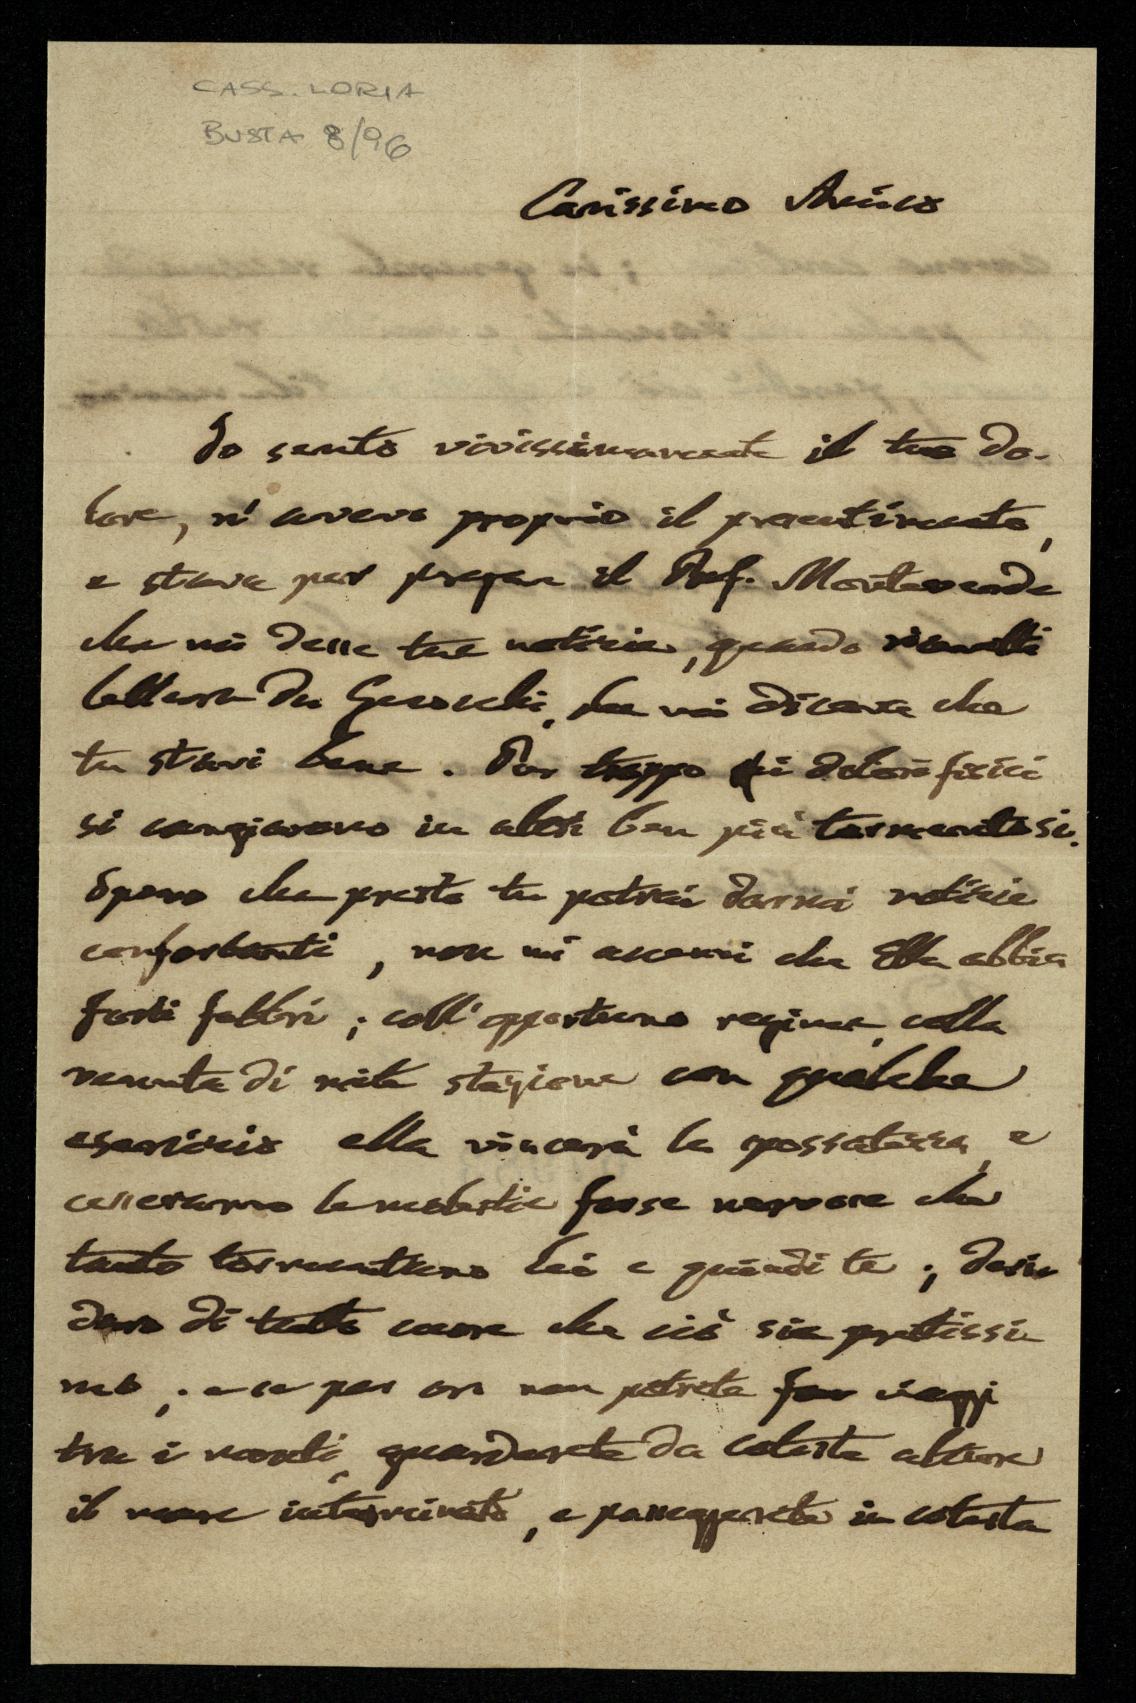 CASS. LORIA
BUSTA 8/96
Carissimo Amico
Io sento vivissimamente il tuo do-
lore, n'aveva proprio il presentimento,
e stava per pregare il Prof. Monteverde
che mi desse tue notizie, quando ricevetti
lettera da che mi diceva che
tu stavi bene. Pur troppo i dolori fisici
si cangiarono in altri ben più tormentosi.
Spero che presto tu potrai darmi notizie
confortanti, non mi accenni che Ella abbia
forti febbri; coll'opportuno regime, colla
venuta di mite stagione con qualche
esercizio ella vincerà la spossatezza, e
cesseranno le molestie forse nervose che
tanto tormentano lei e quindi te; desi
dero di tutto cuore che ciò sia prestissi
mo; e se per ora non potrete far viaggi
tra i monti, guarderete da coteste alture
il mare interminato, e passeggerete in cotesta